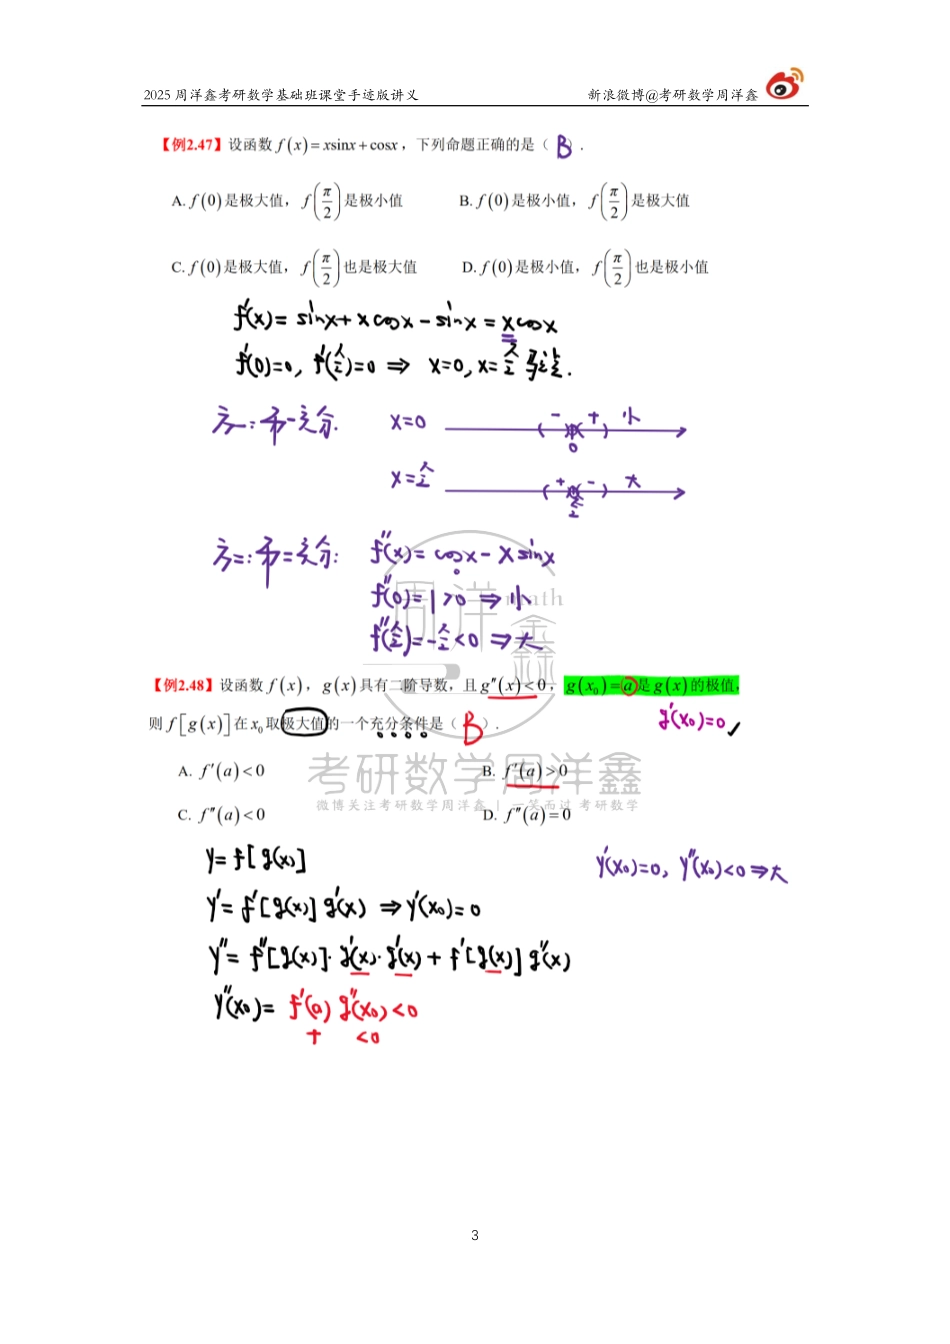 2025 周洋鑫考研数学基础班课堂手迹版讲义 新浪微博@考研数学周洋鑫
【例2.47】设函数 f(x)=xsinx+cosx，下列命题正确的是（ B ）.
A. f(0)是极大值，f(π/2)是极小值 B. f(0)是极小值，f(π/2)是极大值
C. f(0)是极大值，f(π/2)也是极大值 D. f(0)是极小值，f(π/2)也是极小值
f'(x)= sinx+xcosx-sinx = xcosx
f'(0)=0, f'(π/2)=0 ⇒ x=0, x=π/2 驻点.
方一:第一充分. x=0 - + 小
0
x=π/2 + - 大
π/2
方二:第二充分: f''(x)= cosx-xsinx
f''(0)=1>0 ⇒小
f''(π/2)=-π/2<0 ⇒大
【例2.48】设函数 f(x)，g(x)具有二阶导数，且g''(x)<0，g(x₀)=a是g(x)的极值，
则 f[g(x)]在x₀取极大值的一个充分条件是（ B ）. g'(x₀)=0 ✓
A. f'(a)<0 B. f'(a)>0
C. f''(a)<0 D. f''(a)=0
y=f[g(x)] y'(x₀)=0, y''(x₀)<0⇒大
y'=f'[g(x)]g'(x) ⇒y'(x₀)=0
y''=f''[g(x)]·g'(x)·g'(x)+f'[g(x)]g''(x)
y''(x₀)= f'(a)g''(x₀)<0
+ <0
周洋鑫math
考研数学周洋鑫
微博关注考研数学周洋鑫 | 一笑而过 考研数学
3